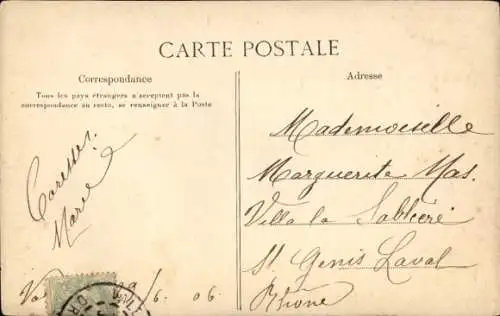 CARTE POSTALE
Correspondance
Tous les pays étrangers n'acceptent pas la
correspondance au recto, se renseigner à la Poste
Adresse
Caresses.
Marie
6. 06
Mademoiselle
Marguerite Mas.
Villa la Sablière
St. Genis Laval
Rhône